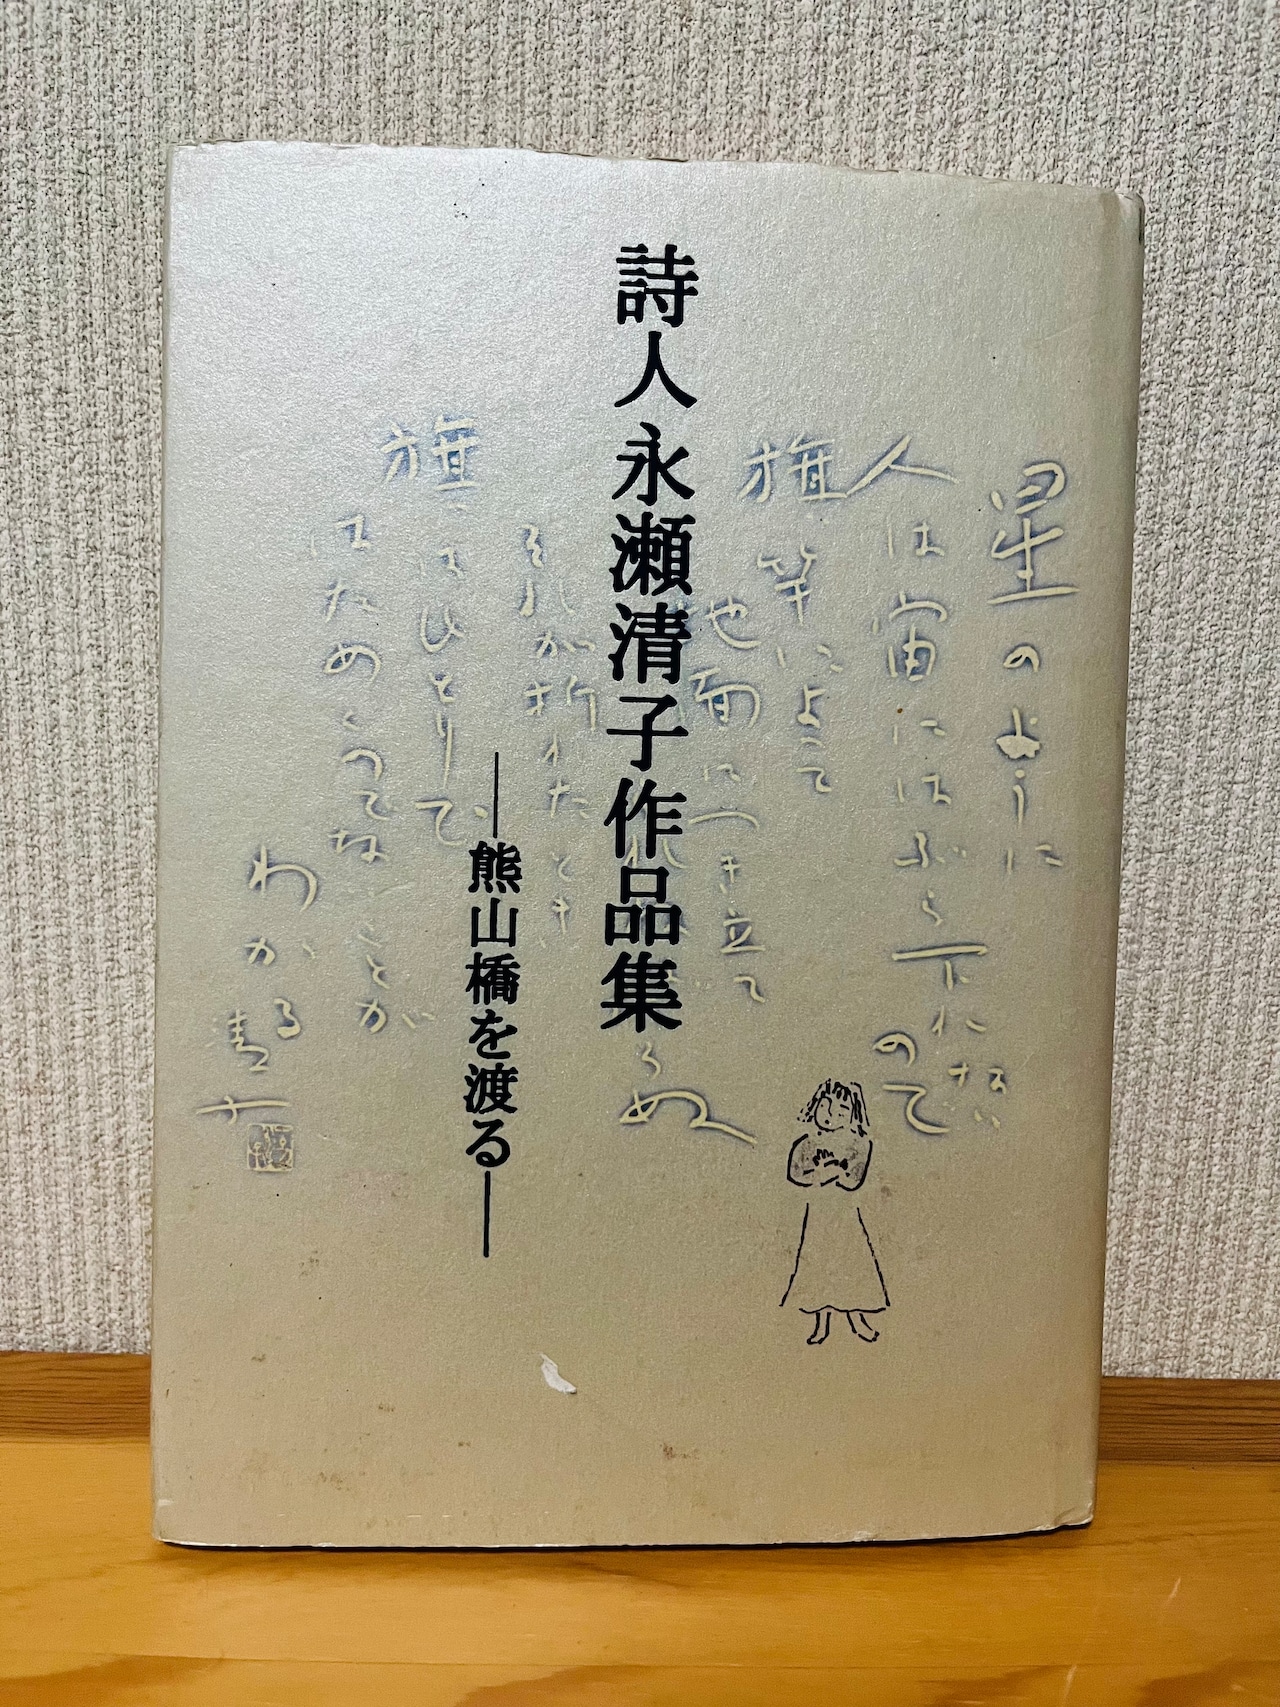 詩人永瀬清子作品集
―熊山橋を渡る―
星のように
人は宙にはぶら下れない
ので
旗竿によって
地面につき立て
られ
らぬ
それが折れたとき
旗はひとりで、
はためくってなことが
わかる
清子